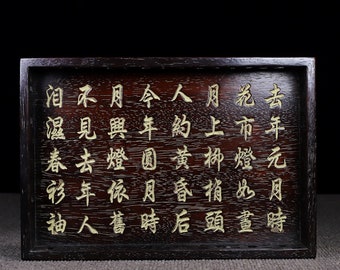 去年元月時
花市燈如晝
月上柳梢頭
人約黃昏后
今年圓月時
月與燈依舊
不見去年人
泪濕春衫袖